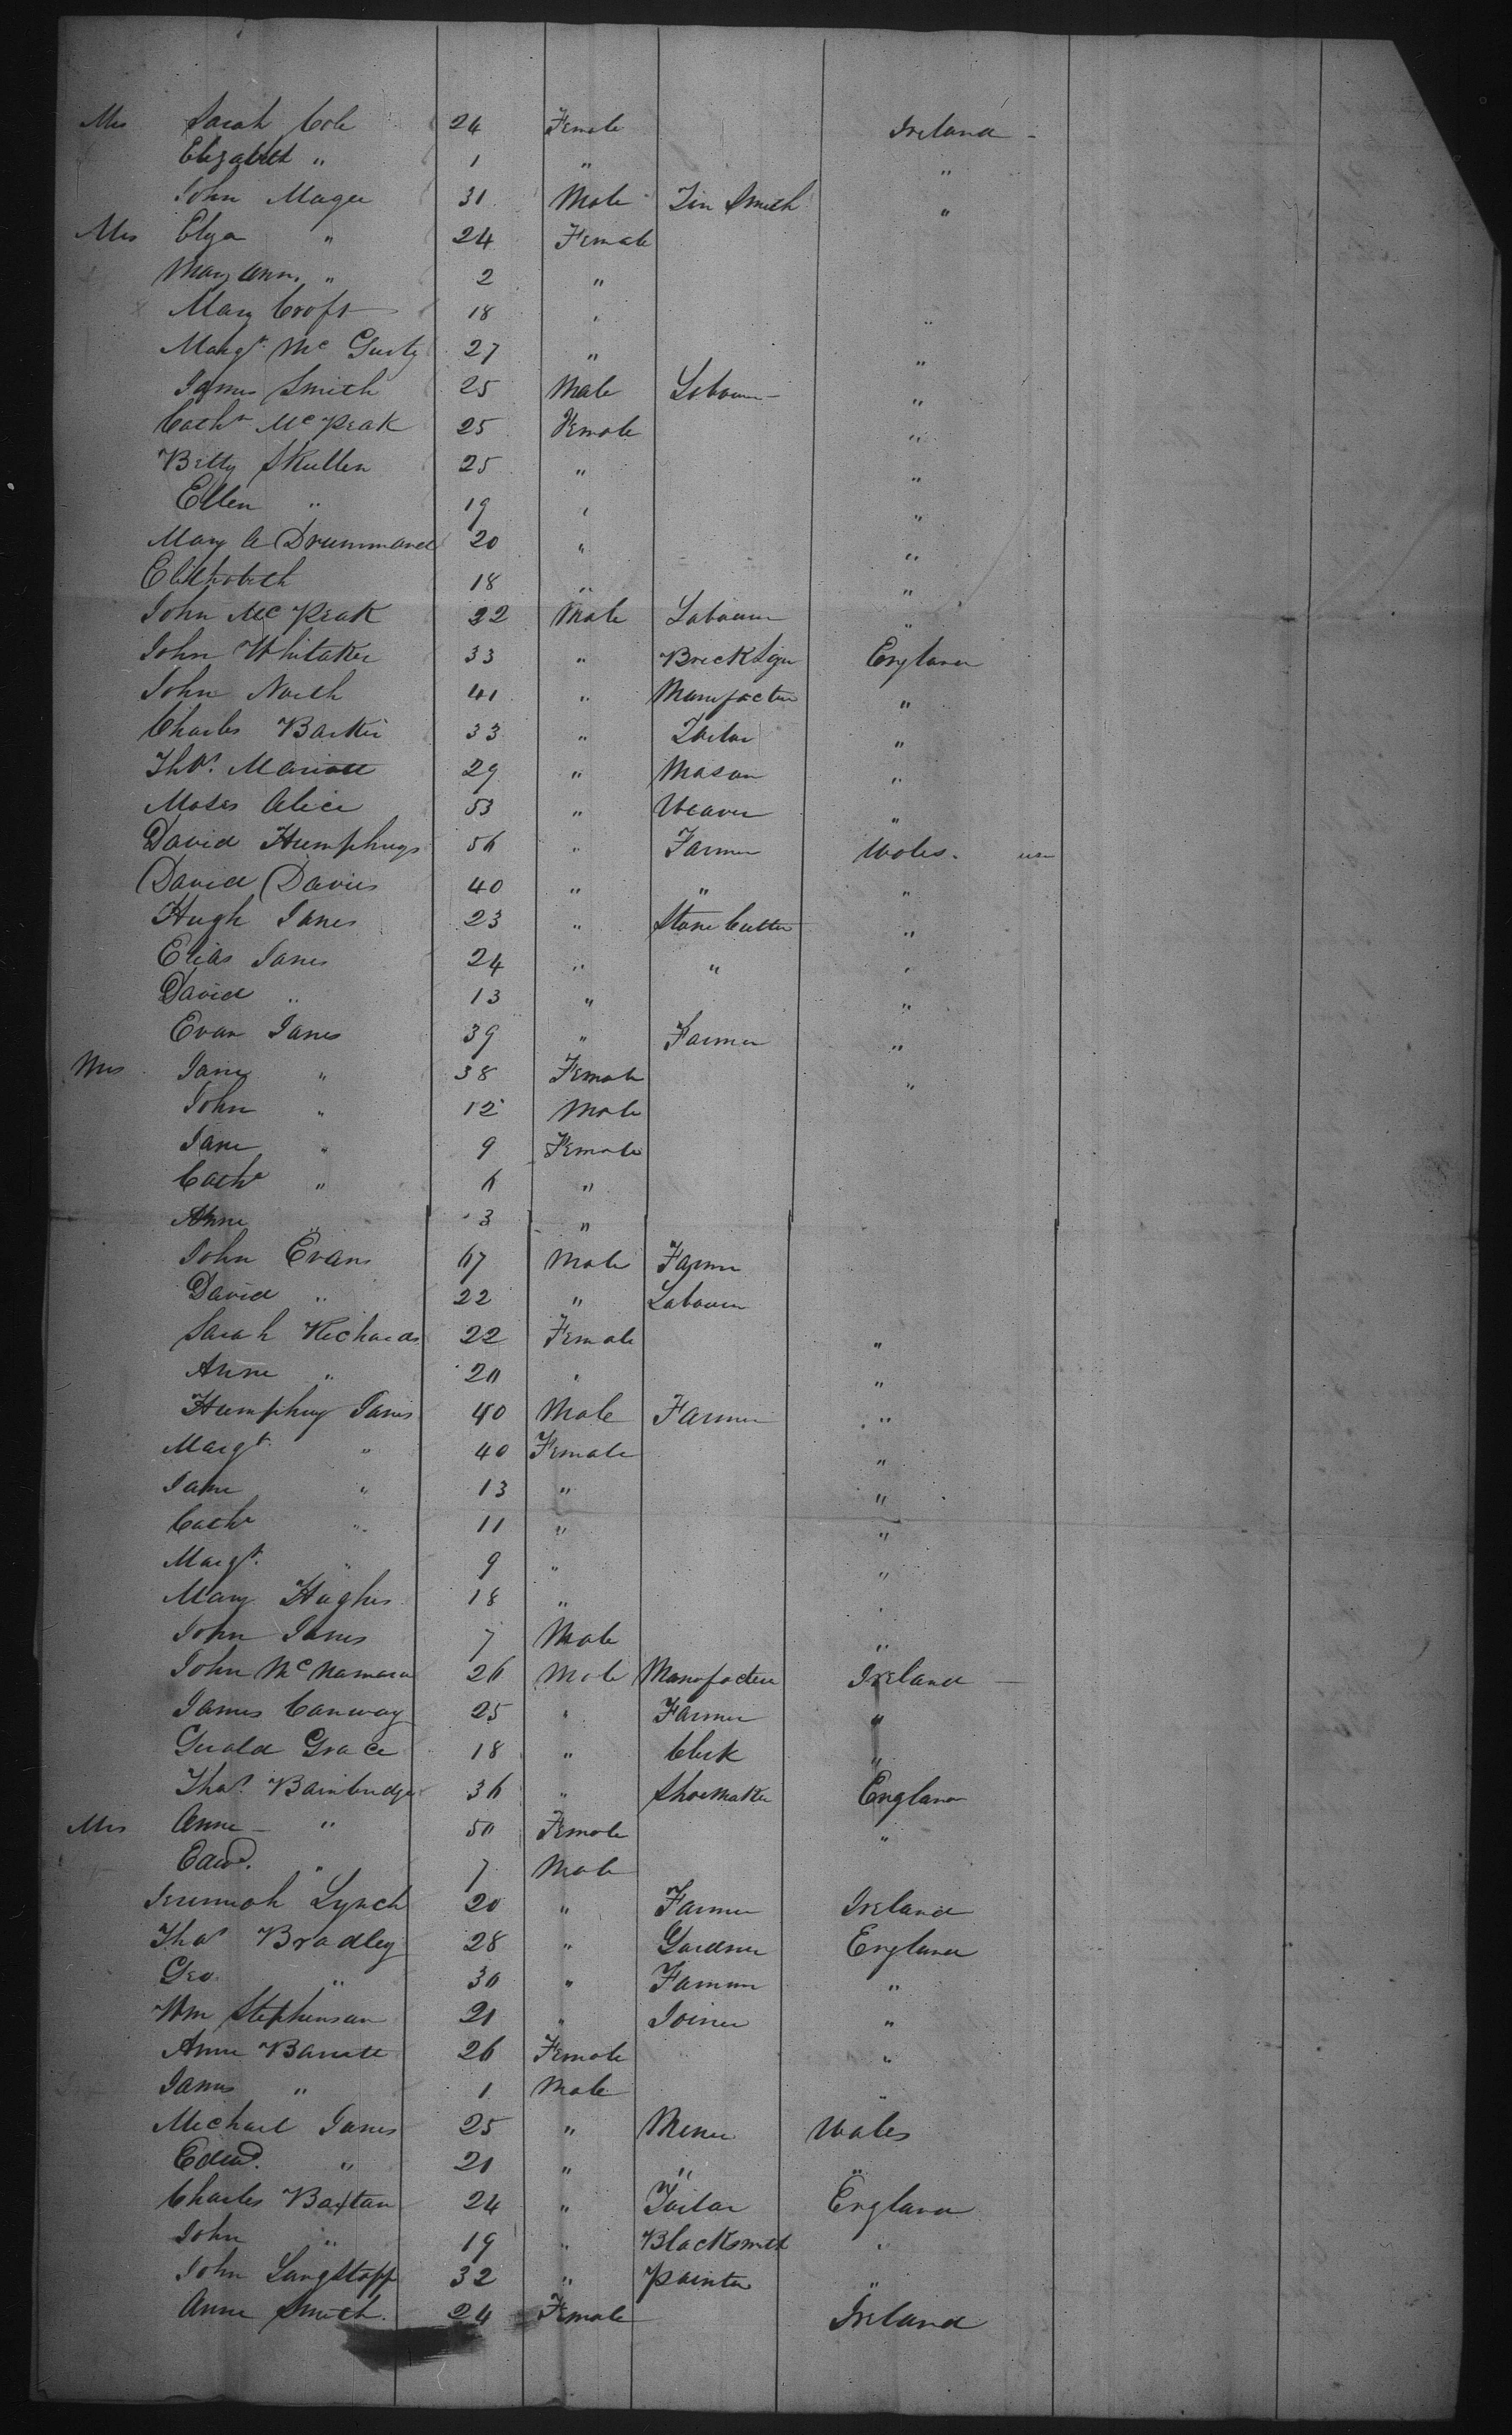 Mrs Sarah Cole 24 Female Ireland -
Elizabeth " 1 " "
John Magee 31 Male Tin Smith "
Mrs Eliza " 24 Female
Mary Ann " 2 "
Mary Croft 18 " "
Margt. Mc Gurty 27 " "
James Smith 25 Male Labourer "
Cathn Mc Peak 25 Female "
Betty Skullen 25 " "
Ellen " 19 " "
Mary A Drummond 20 " "
Elizabeth 18 " "
John Mc Peak 22 Male Labourer "
John Whitaker 33 " Bricklyer England
John North 41 " Manufacter "
Charles Barker 33 " Tailor "
Thos. Mariott 29 " Mason "
Moses Alice 53 " Weaver "
David Humphrys 56 " Farmer Wales.
David Davies 40 " " "
Hugh Jones 23 " Stone Cutter "
Elias Jones 24 " " "
David " 13 " "
Evan Jones 39 " Farmer "
Mrs Jane " 38 Female "
John " 12 Male
Jane " 9 Female
Cathe " 6 "
Anne " 3 "
John Evans 67 Male Farmer
David " 22 " Labourer
Sarah Richards 22 Female "
Anne " 20 " "
Humphrey Jones 40 Male Farmer "
Margt. " 40 Female "
Jane " 13 " "
Cathe " 11 " "
Margt. " 9 " "
Mary Hughes 18 " "
John Jones 7 Male "
John Mc Namara 26 Male Manufacter Ireland -
James Conway 25 " Farmer "
Gerald Grace 18 " Clerk "
Thos. Bainbridge 36 " Shoemaker England
Mrs Anne - " 50 Female "
Edwd. " 7 Male
Jeremiah Lynch 20 " Farmer Ireland
Thos Bradley 28 " Gardner England
Geo. " 30 " Farmer "
Wm Stephenson 21 " Joiner "
Anne Barratt 26 Female "
James " 1 Male "
Michael Jones 25 " Miner Wales
Edwd. " 21 " " "
Charles Baxtan 24 " Tailor England
John " 19 " Blacksmith "
John Langstaff 32 " Painter "
Anne Smith. 24 Female Ireland